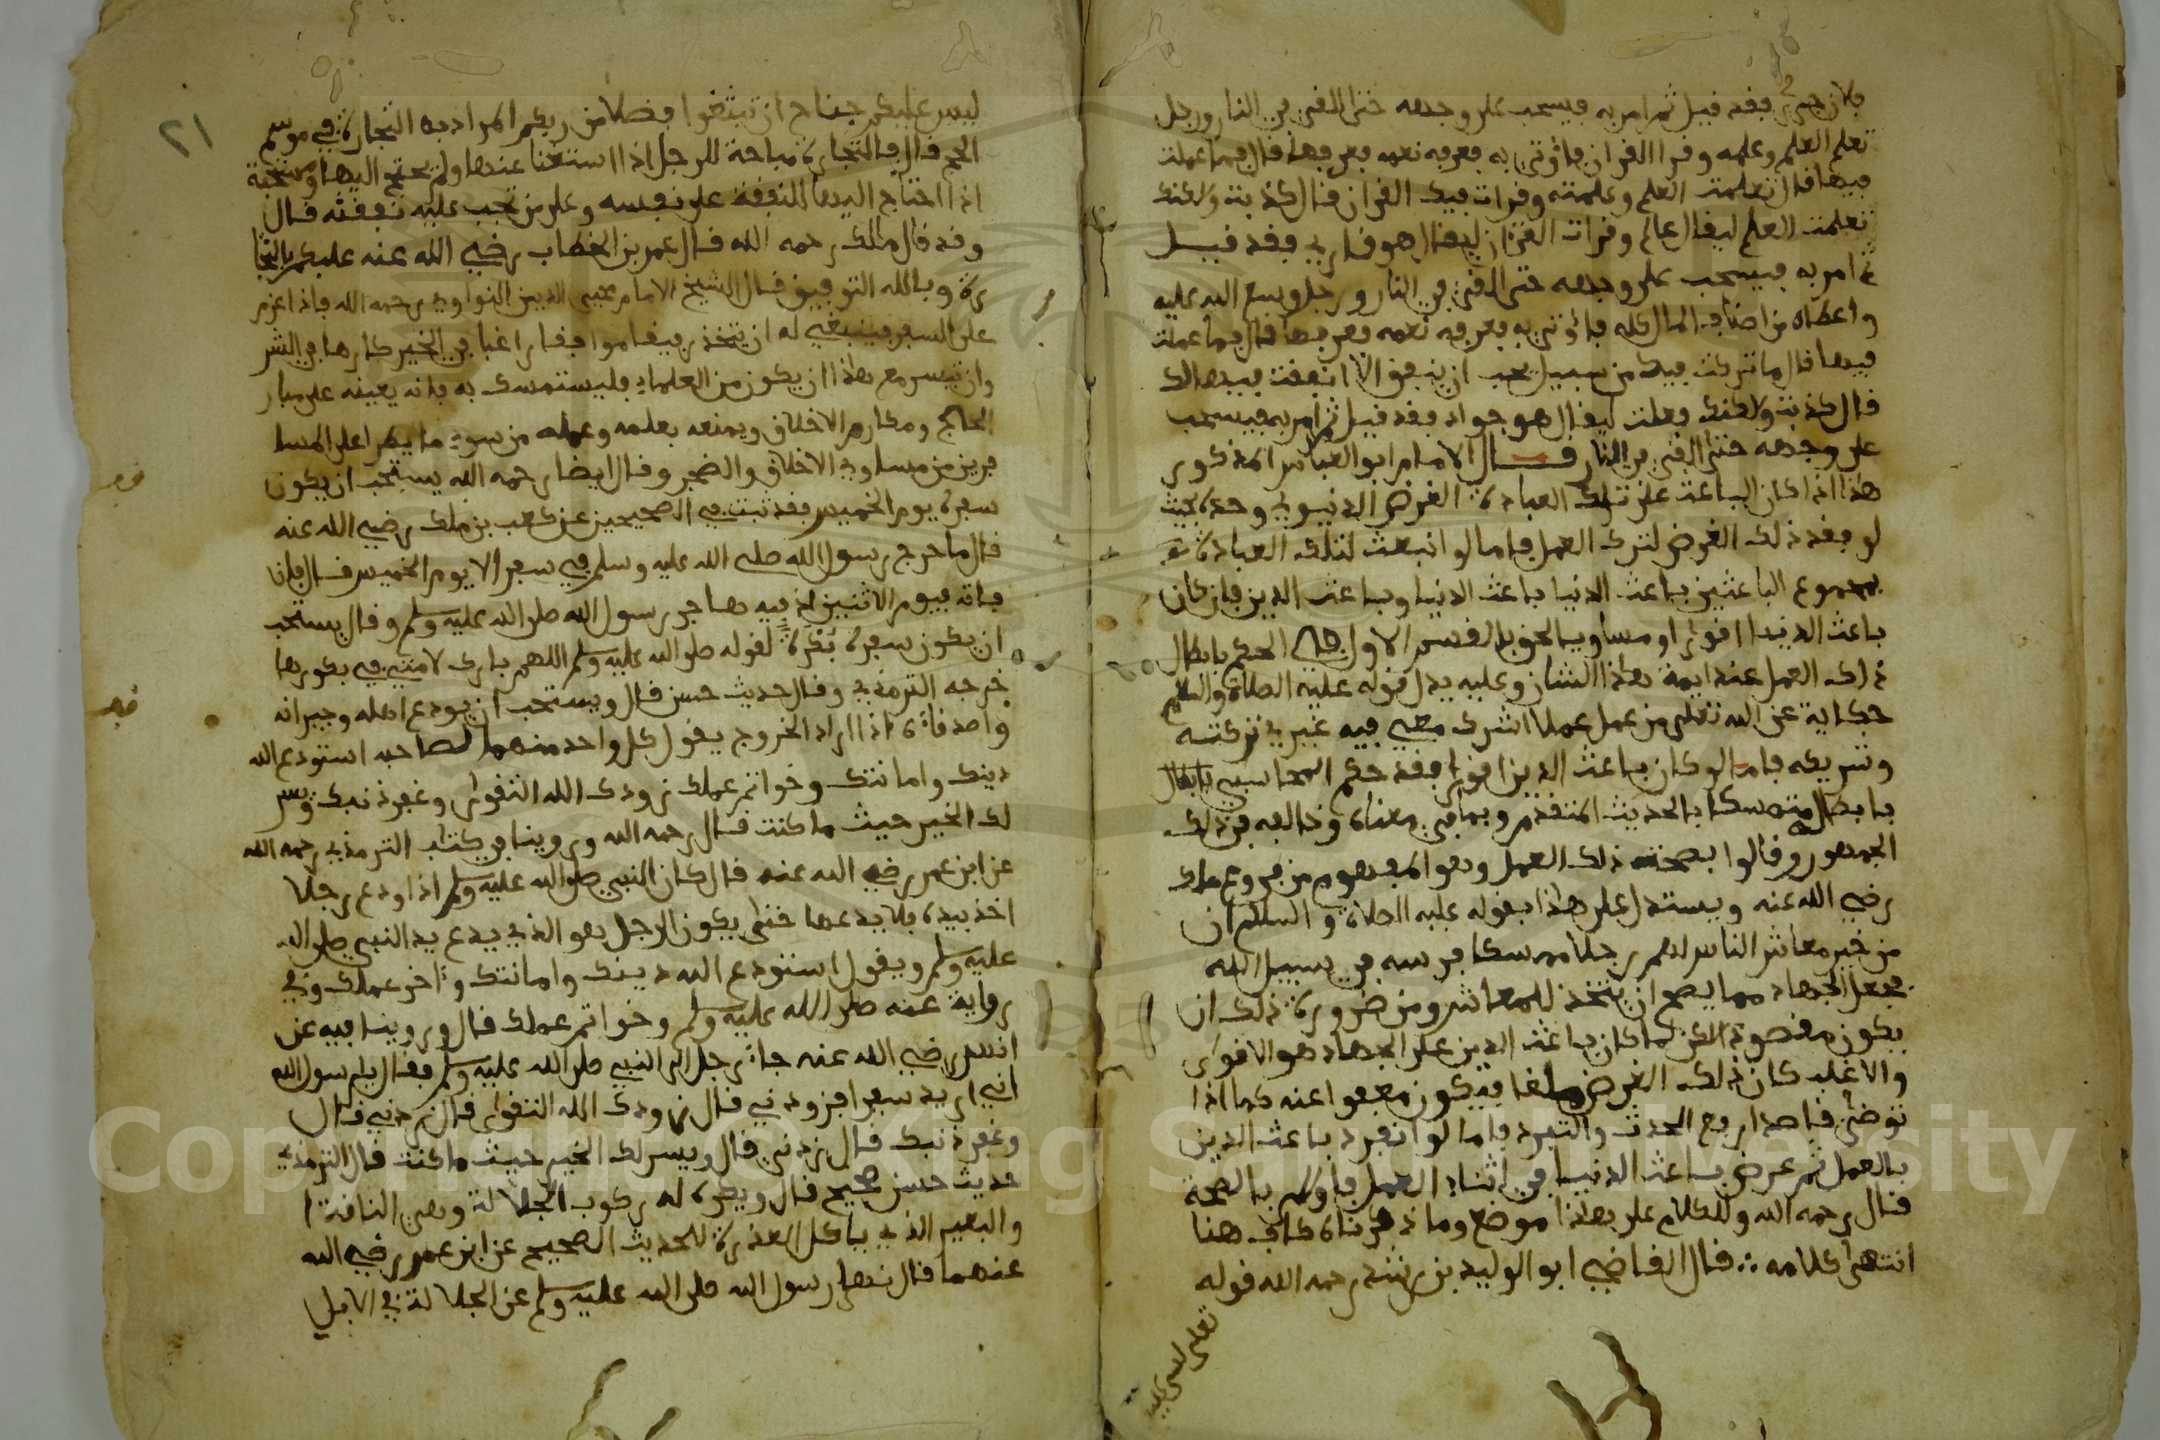 فلان جريء فقد قيل ثم امر به فيسحب على وجهه حتى القي في النار ورجل
تعلم العلم وعلمه وقرا القران فاوتي به فعرفه نعمه فعرفها قال فما عملت
فيها قال تعلمت العلم وعلمته وقرات فيك القران قال كذبت ولكنك
تعلمت العلم ليقال عالم وقرات القران ليقال هو قارئ فقد قيل
ثم امر به فيسحب على وجهه حتى القي في النار ورجل وسع الله عليه
واعطاه من اصناف المال كله فاوتي به فعرفه نعمه فعرفها قال فما عملت
فيها قال ما تركت فيك من سبيل تحب ان ينفق الا انفقت فيها لك
قال كذبت ولكنك فعلت ليقال هو جواد فقد قيل ثم امر به فيسحب
على وجهه حتى القي في النار قال الامام ابو العباس المذكور
هذا اذا كان الباعث على تلك العبادة الغرض الدنيوي وحده بحيث
لو فقد ذلك الغرض لترك العمل فاما لو انبعث لتلك العبادة
بمجموع الباعثين باعث الدنيا وباعث الدين فان كان
باعث الدنيا اقوى او مساويا لحق بالقسم الاول في الحكم بابطال
ذلك العمل عند ايمة هذا الشان وعليه يدل قوله عليه الصلاة والسلام
حكاية عن الله تعلى من عمل عملا اشرك معي فيه غيري تركته
وشريكه فاما لو كان باعث الدين اقوى فقد حكم المحاسبي بابطال
بابطال متمسكا بالحديث المتقدم وبما في معناه وخالفه في ذلك
الجمهور وقالوا بصحة ذلك العمل وهو المفهوم من فروع ملك
رضي الله عنه ويستدل على هذا بقوله عليه الصلاة والسلام ان
من خير معاش الناس لهم رجلا ممسكا فرسه في سبيل الله
فجعل الجهاد مما يصح ان يتخذ للمعاش ومن ضرورة ذلك ان
يكون مقصودا لكن لما كان باعث الدين على الجهاد هو الاقوى
والاغلب كان ذلك الغرض ملغا فيكون معفوا عنه كما اذا
توضئ قاصدا رفع الحدث والتبرد فاما لو انفرد باعث الدين
بالعمل ثم عرض باعث الدنيا في اثناء العمل فاولى بالصحة
قال رحمه الله وللكلام على هذا موضع وما ذكرناه كاف هنا
انتهى كلامه ∴ قال القاضي ابو الوليد بن رشد رحمه الله قوله
تعلى ليس عليكم
٢١
ليس عليكم جناح ان تبتغوا فضلا من ربكم المراد به التجارة في موسم
الحج قال فالتجارة مباحة للرجل اذا استغنا عنها ولم يحتج اليها ومستحبة
اذا احتاج اليها للنفقة على نفسه وعلى من تجب عليه نفقته قال
وقد قال مالك رحمه الله قال عمر بن الخطاب رضي الله عنه عليكم بالتجا
رة وبالله التوفيق قال الشيخ الامام محيي الدين النواوي رحمه الله فاذا عزم
على السفر فينبغي له ان يتخذ رفيقا موافقا راغبا في الخير كارها في الشر
وان تيسر مع هذا ان يكون من العلماء فليستمسك به فانه يعينه على مبار
الحاج ومكارم الاخلاق ويمنعه بعلمه وعمله من سوء ما يطرا على المسا
فرين من مساوي الاخلاق والضجر وقال ايضا رحمه الله يستحب ان يكون
سفره يوم الخميس فقد ثبت في الصحيحين عن كعب بن ملك رضي الله عنه
قال ما خرج رسول الله صلى الله عليه وسلم في سفر الا يوم الخميس قال فان
فاته فيوم الاثنين اذ فيه هاجر رسول الله صلى الله عليه وسلم وقال يستحب
ان يكون سفره بكرة لقوله صلى الله عليه وسلم اللهم بارك لامتي في بكورها
خرجه الترمذي وقال حديث حسن قال ويستحب ان يودع اهله وجيرانه
واصدقاءه اذا اراد الخروج يقول كل واحد منهما لصاحبه استودع الله
دينك وامانتك وخواتم عملك زودك الله التقوى وغفر ذنبك ويسر
لك الخير حيث ما كنت قال رحمه الله وروينا في كتاب الترمذي رحمه الله
عن ابن عمر رضي الله عنه قال كان النبي صلى الله عليه وسلم اذا ودع رجلا
اخذ بيده فلا يدعها حتى يكون الرجل هو الذي يدع يد النبي صلى الله
عليه وسلم ويقول استودع الله دينك وامانتك واخر عملك وفي
رواية عنه صلى الله عليه وسلم وخواتم عملك قال وروينا فيه عن
انس رضي الله عنه جاء رجل الى النبي صلى الله عليه وسلم فقال يا رسول الله
اني اريد سفرا فزودني قال زودك الله التقوى قال زدني قال
وغفر ذنبك قال زدني قال ويسر لك الخير حيث ما كنت قال الترمذي
حديث حسن صحيح قال ويكره له ركوب الجلالة وهي الناقة
والبعير الذي ياكل العذرة للحديث الصحيح عن ابن عمر رضي الله
عنهما قال نهى رسول الله صلى الله عليه وسلم عن الجلالة في الابل